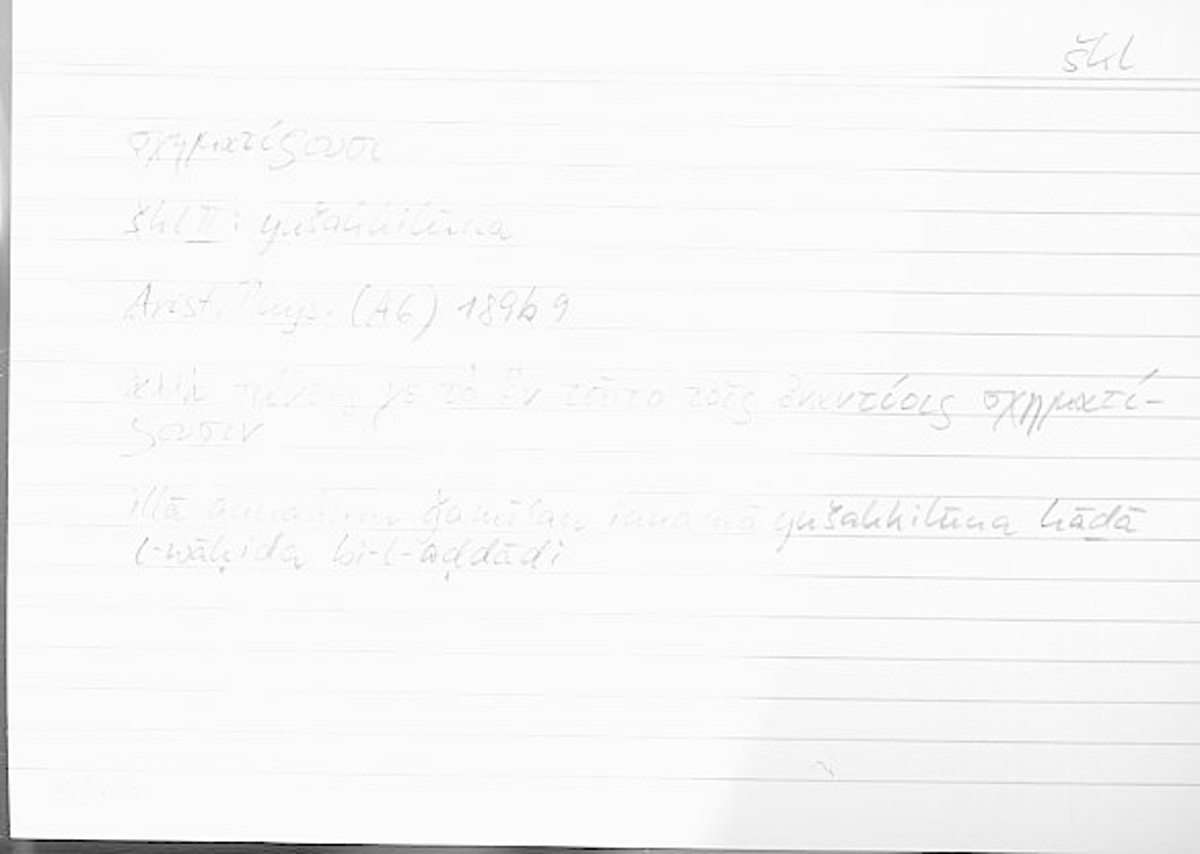 škl
σχηματίζουσι
škl II: yušakkilūna
Arist. Phys. (A6) 189b9
ἀλλὰ πάντες γε τὸ ἓν τοῦτο τοῖς ἐναντίοις σχηματί-
ζουσιν
illā annahum ǧamīʿan innamā yušakkilūna hāḏā
l-wāḥida bi-l-aḍdādi